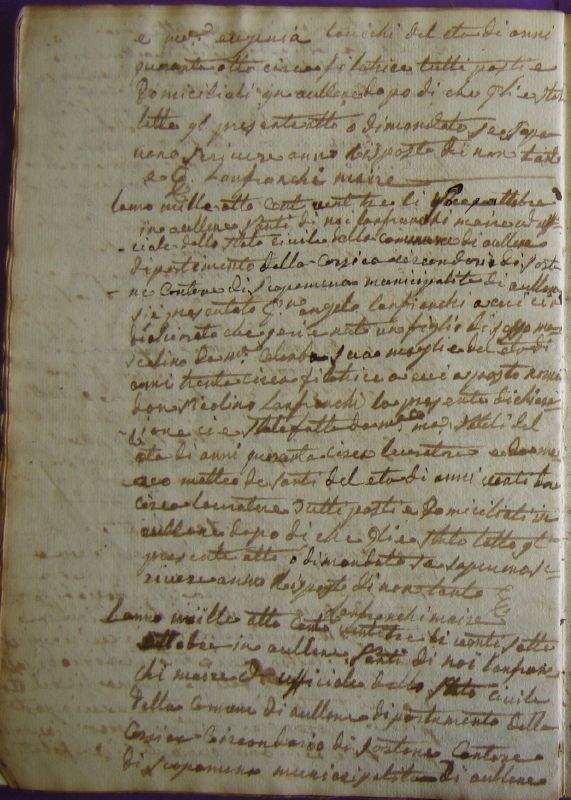 e m.a eugenia del eta di anni
quarant otto circa filatrice tutti posti e
domiciliati in aullene dopo di che gli e stato
letto il presente atto o dimandato se sape
vano scrivere anno risposto di non
Lanfranchi maire
Lanno mille otto cento ventitre li ottobre
in aullene avanti di noi lanfranchi maire ed uffi
ciale dello stato civile della comune di aullene
dipartimento della corsica circondario di sarte
ne Cantone di scopamena municipalita di aullene
si e presentato angelo lanfranchi a cui ci a
dichiarato che gli e nato un figlio di sesso ma
scolino da m.a Colomba sua moglie del eta di
anni trenta circa filatrice a cui a posto nome
don Nicolino Lanfranchi la presente dichiara
zione ci e stata fatta da ma. del
eta di anni quaranta circa lavoratore e dome
nico matteo de santi del eta di anni
circa lavoratore tutti posti e domiciliati in
aullene dopo di che gli e stato letto il
presente atto o dimandato se sapevano sc
rivere anno risposto di non
Lanfranchi maire
Lanno mille otto cento ventitre li venti sette
ottobre in aullene avanti di noi lanfran
chi maire ed ufficiale dello stato civile
della Comune di aullene dipartimento della
Corsica Circondario di sartene Cantone
di scopamena municipalita di aullene